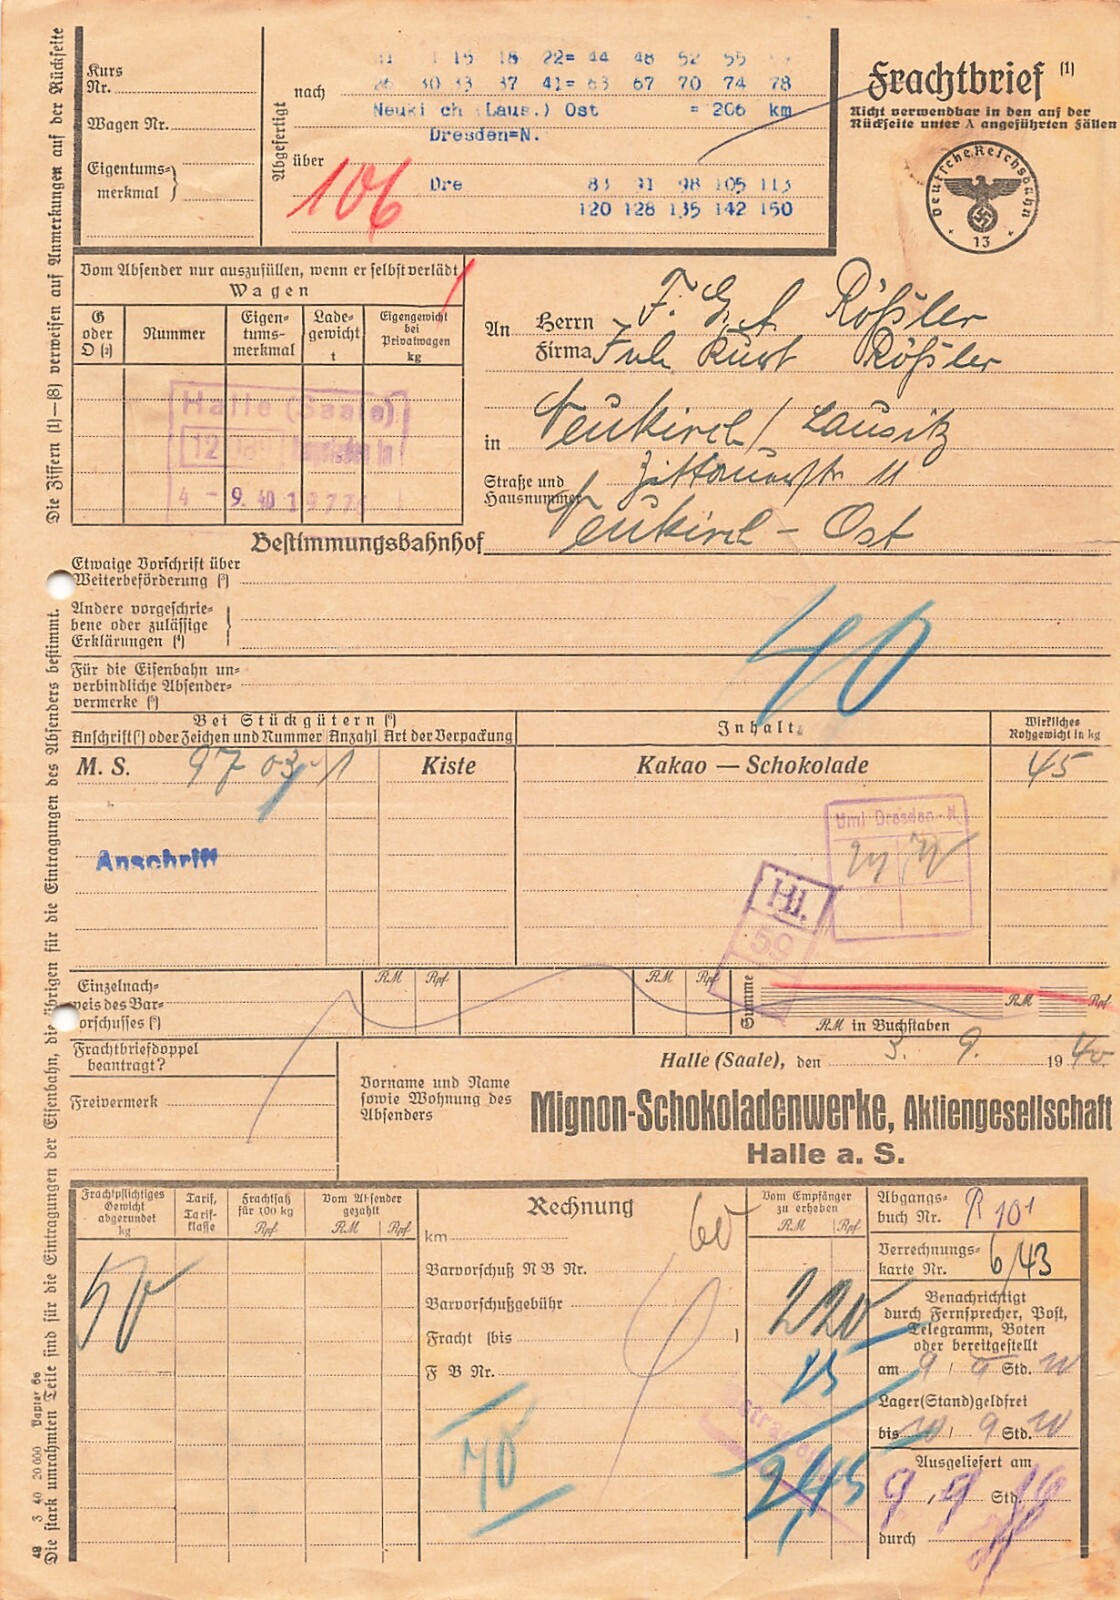 Kurs
Nr.
Wagen Nr.
Eigentums=
merkmal
Abgefertigt
nach
über
15 18 22= 44 48 52 55
26 30 33 37 41= 63 67 70 74 78
Neuki ch (Laus.) Ost = 206 km
Dresden=N.
Dre 83 91 98 105 113
120 128 135 142 150
106
Frachtbrief (1)
Nicht verwendbar in den auf der
Rückseite unter A angeführten Fällen
Deutsche Reichsbahn
13
Vom Absender nur auszufüllen, wenn er selbst verlädt
Wagen
G
oder
O (2)
Nummer
Eigen=
tums=
merkmal
Lade=
gewicht
t
Eigengewicht
bei
Privatwagen
kg
Halle (Saale)
12
4 - 9. 40
An Herrn
Firma
F. G. A. Rößler
Inh. Kurt Rößler
in Neukirch / Lausitz
Straße und
Hausnummer
Zittauerstr 11
Bestimmungsbahnhof Neukirch - Ost
Etwaige Vorschrift über
Weiterbeförderung (3)
Andere vorgeschrie=
bene oder zulässige
Erklärungen (4)
40
Für die Eisenbahn un=
verbindliche Absender=
vermerke (5)
Bei Stückgütern (6)
Anschrift (7) oder Zeichen und Nummer Anzahl Art der Verpackung
Inhalt
Wirkliches
Rohgewicht in kg
M. S. 9703 1 Kiste Kakao — Schokolade 45
Anschrift
Uml Dresden-N.
Hl.
59
Einzelnach=
weis des Bar=
vorschusses (8)
RM Rpf
RM Rpf
Summe
RM Rpf
RM in Buchstaben
Frachtbriefdoppel
beantragt?
Freivermerk
Halle (Saale), den 3. 9. 1940
Vorname und Name
sowie Wohnung des
Absenders
Mignon-Schokoladenwerke, Aktiengesellschaft
Halle a. S.
Frachtpflichtiges
Gewicht
abgerundet
kg
50
Tarif,
Tarif=
klasse
Frachtsatz
für 100 kg
Rpf
Vom Absender
gezahlt
RM Rpf
Rechnung
km
60
Barvorschuß N B Nr.
Barvorschußgebühr
Fracht (bis )
F B Nr.
70
Vom Empfänger
zu erheben
RM Rpf
220
25
2,45
Abgangs=
buch Nr. R 101
Verrechnungs=
karte Nr. 6/43
Benachrichtigt
durch Fernsprecher, Post,
Telegramm, Boten
oder bereitgestellt
am 9 / 9 Std. 10
Lager(Stand)geldfrei
bis 10 / 9 Std. 10
Ausgeliefert am
9 , 9 Std.
durch
Die Ziffern (1)—(8) verweisen auf Anmerkungen auf der Rückseite
Die stark umrahmten Teile sind für die Eintragungen der Eisenbahn, die übrigen für die Eintragungen des Absenders bestimmt.
48 3 40 20 000 Papier 6b